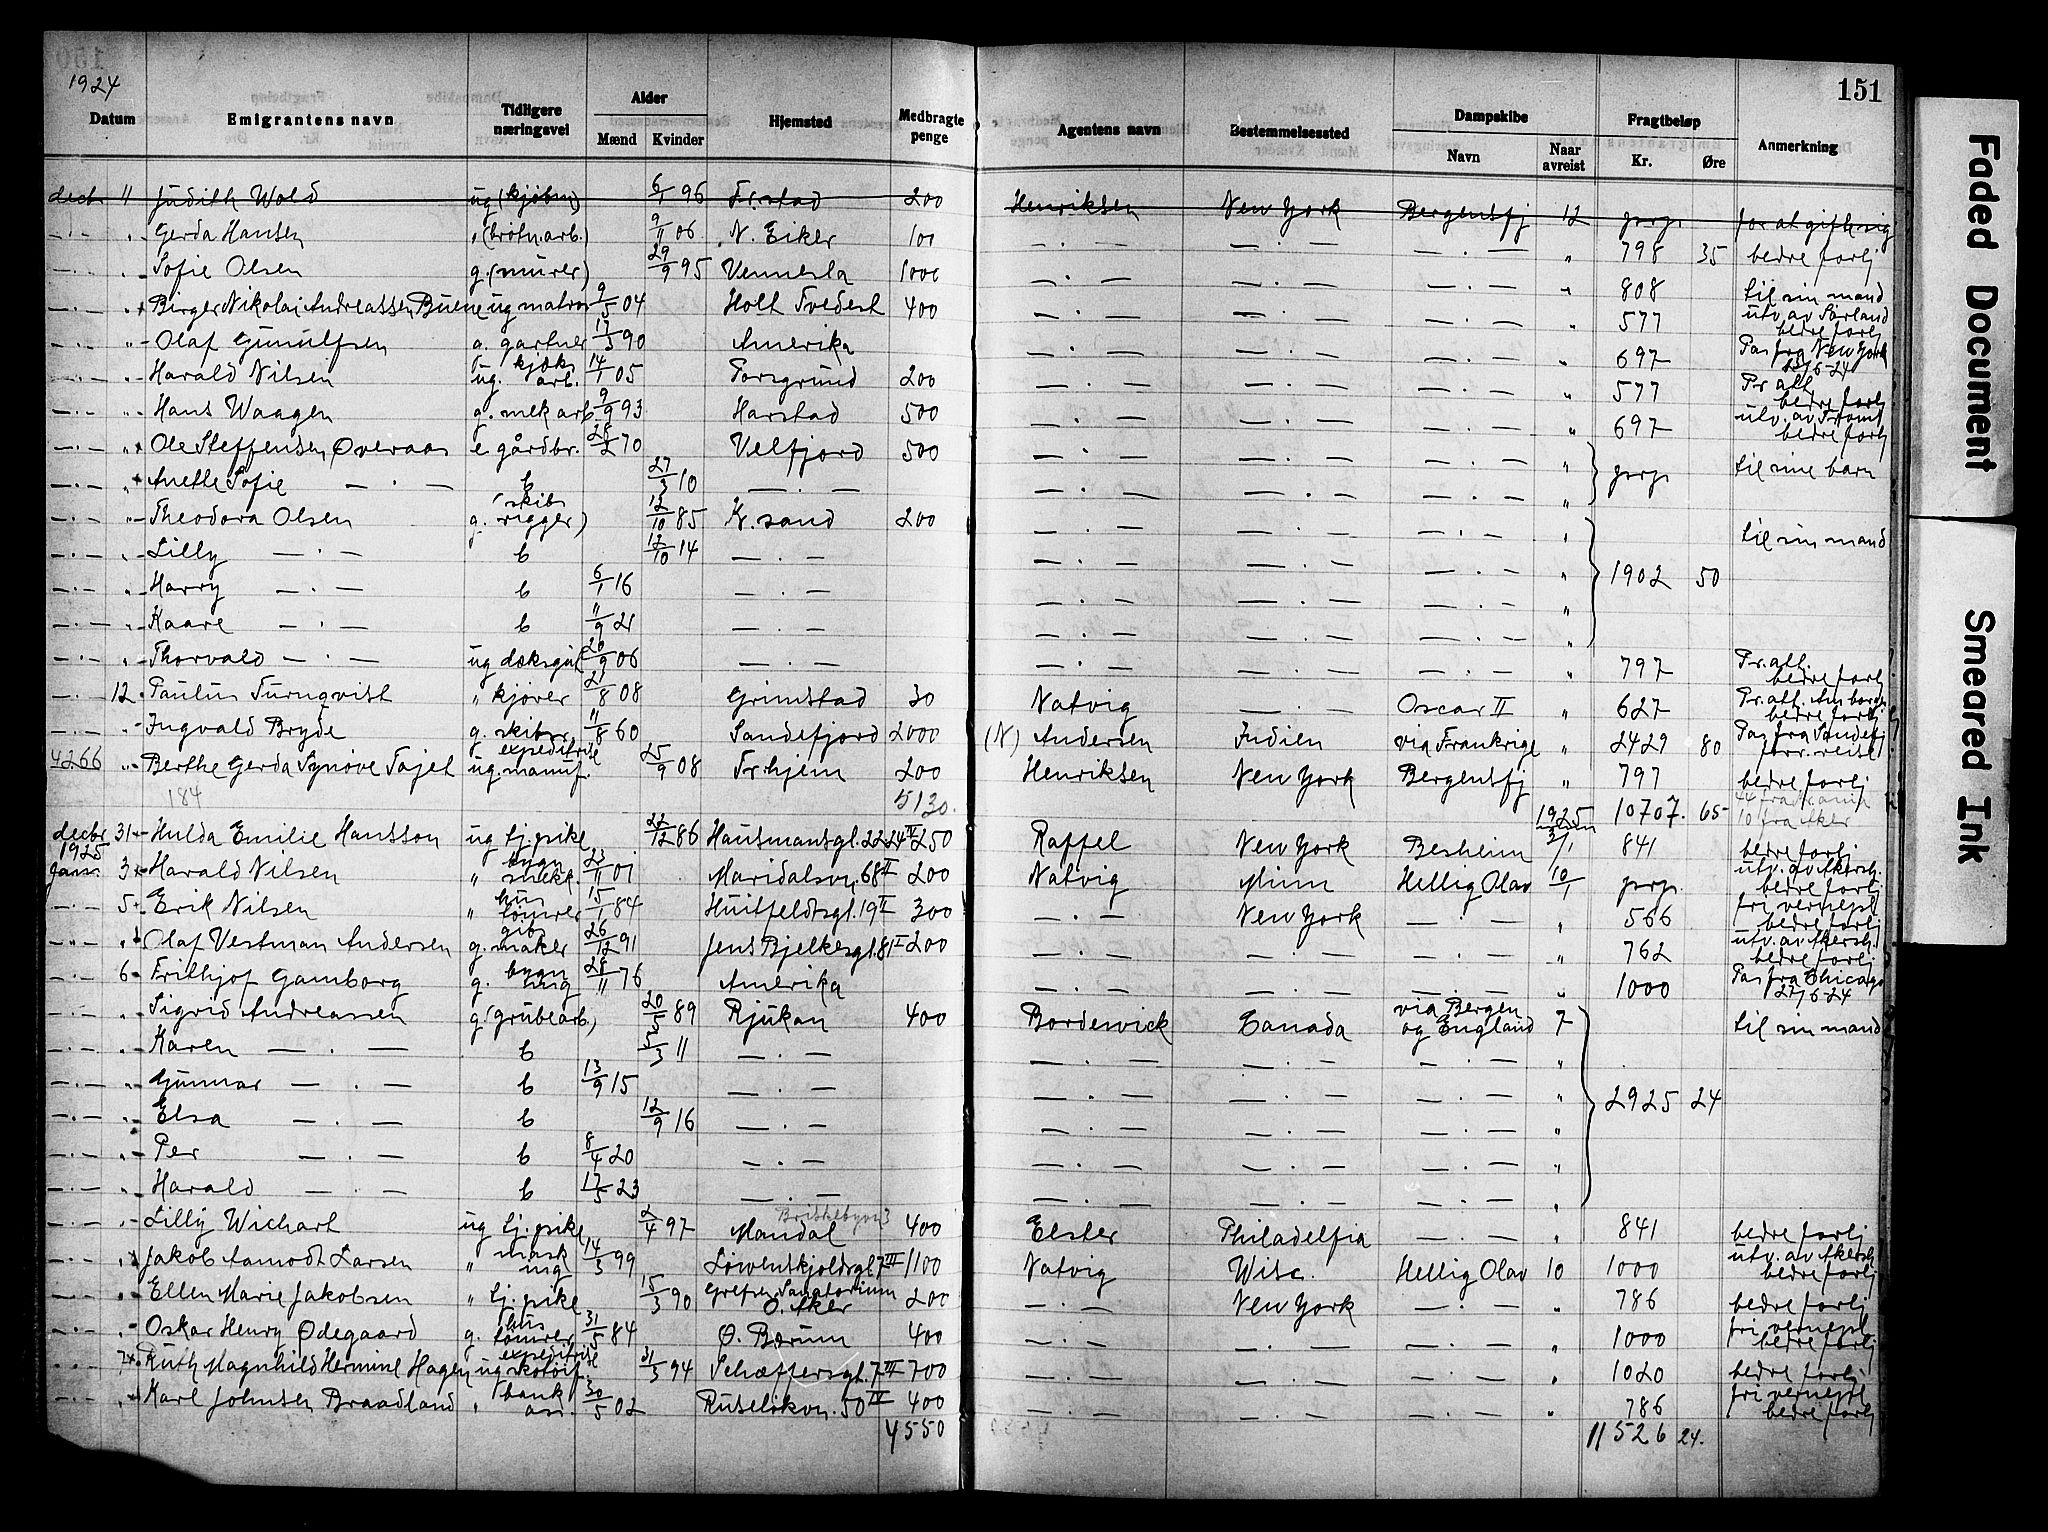 150
1924
151
Datum | Emigrantens navn | Tidligere næringsvei | Alder Mænd | Kvinder | Hjemsted | Medbragte penge | Agentens navn | Bestemmelsessted | Dampskibe Navn | Naar avreist | Fragtbeløp Kr. | Øre | Anmerkning
decbr 11 Judith Wold ug (kjøbm) 6/1 96 Fr.stad 200 Henriksen New York Bergensfj 12 prp. for at gifte sig
—·— „ Gerda Hansen „ (brøtn.arb.) 9/11 06 N. Eiker 100 —·— —·— —·— „ 798 35 bedre forlj
—·— „ Sofie Olsen g. (murer) 29/9 95 Vennesla 1000 —·— —·— —·— „ 808 til sin mand
—·— „ Birger Nikolai Andreassen Buene ug matros 9/5 04 Holt Tvedest 400 —·— —·— —·— „ 577 utv. av Sørland bedre forlj
—·— „ Olaf Gunulfsen g. gartner 17/3 90 Amerika —·— —·— —·— „ 697 Pas fra New York 6-24
—·— „ Harald Nilsen ug. kjøks arb. 14/1 05 Porsgrund 200 —·— —·— —·— „ 577 Pr. att. bedre forlj
—·— „ Hans Waagen g. mek arb 9/9 93 Harstad 500 —·— —·— —·— „ 697 utv. av Troms bedre forlj
—·— „ Ole Steffensen Øveraas e. gårdbr. 28/2 70 Velfjord 500 —·— —·— —·— „ prp. til sine barn
—·— „ Anette Sofie —·— b 27/3 10 —·— —·— —·— —·— „
—·— „ Theodora Olsen g. (skibsrigger) 12/10 85 Kr.sand 200 —·— —·— —·— „ til sin mand
—·— „ Lilly —·— b 12/10 14 —·— —·— —·— —·— „ 1902 50
—·— „ Harry —·— b 6/1 16 —·— —·— —·— —·— „
—·— „ Kaare —·— b 11/9 21 —·— —·— —·— —·— „
—·— „ Thorvald —·— ug dæksgut 20/9 06 —·— —·— —·— —·— „ 797 Pr. att. bedre forlj
—·— 12 Paulus Turnqvist „ kjører 27/8 08 Grimstad 30 Natvig —·— Oscar II „ 627 Pr. att. bedre forlj
„ Ingvald Bryde g. skibsr 11/8 60 Sandefjord 2000 (N) Andersen Indien via Frankrige „ 2429 80 Pas fra Sandefj forr. reise
4266 „ Berthe Gerda Synøve Føjet ug. expeditrise manuf. 25/9 08 Tr.hjem 200 Henriksen New York Bergensfj „ 797 bedre forlj
184 5130. 10707. 65 44 fra Kr.ania 10 fra Aker
decbr 31 Hulda Emilie Hansson ug tj.pike 22/12 86 Hausmansgt. 22-24 IV 250 Raffel New York Besheim 1925 3/1 841 bedre forlj
1925 Janr 3 Harald Nilsen „ bygn snekk. 23/11 01 Maridalsvn 68 II 200 Natvig Minn Hellig Olav 10/1 prp. utv. av Akersh. bedre forlj
—·— 5 Erik Nilsen „ hus tømrer 15/1 84 Huitfeldtsgt. 19 II 300 —·— New York —·— „ 566 fri vernepl bedre forlj
—·— „ Olaf Vestman Andersen g. gibsmaker 26/12 91 Jens Bjelkesgt. 81 I 200 —·— —·— —·— „ 762 utv. av Akersh. bedre forlj
—·— 6 Frithjof Gamborg g. bygn ing 28/11 76 Amerika —·— —·— —·— „ 1000 Pas fra Chicago 27/6-24
—·— „ Sigrid Andreassen g (grubearb) 20/5 89 Rjukan 400 Bordewick Canada via Bergen og England 7 til sin mand
—·— „ Karen —·— b 5/3 11 —·— —·— —·— —·— „
—·— „ Gunnar —·— b 13/9 15 —·— —·— —·— —·— „ 2925 24
—·— „ Elsa —·— b 12/9 16 —·— —·— —·— —·— „
—·— „ Per —·— b 8/4 20 —·— —·— —·— —·— „
—·— „ Harald —·— b 17/5 23 —·— —·— —·— —·— „
—·— „ Lilly Wichart ug tj.pike 2/4 97 Mandal 400 Elster Philadelfia —·— „ 841 bedre forlj
—·— „ Jakob Aamodt Larsen „ mask ing 14/3 99 Løvenskjoldsgt 7 III 1100 Natvig Wisc. Hellig Olav 10 1000 utv. av Akersh bedre forlj
—·— „ Ellen Marie Jakobsen „ tj.pike 15/3 90 Grefsen Sanatorium Ø. Aker 200 —·— New York —·— „ 786 bedre forlj
—·— „ Oskar Henry Ødegaard g. hus tømrer 31/5 84 Ø. Bærum 400 —·— —·— —·— „ 1000 fri vernepl bedre forlj
—·— 7 Ruth Magnhild Hermine Hagen ug expeditrise skotøif. 31/3 94 Schæffersgt. 7 III 700 —·— —·— —·— „ 1020 bedre forlj
—·— „ Karl Johnsen Braadland „ bank ass. 30/5 02 Ruseløkvn. 50 IV 400 —·— —·— —·— „ 786 fri vernepl bedre forlj
4550 11526 24.
Faded Document
Smeared Ink